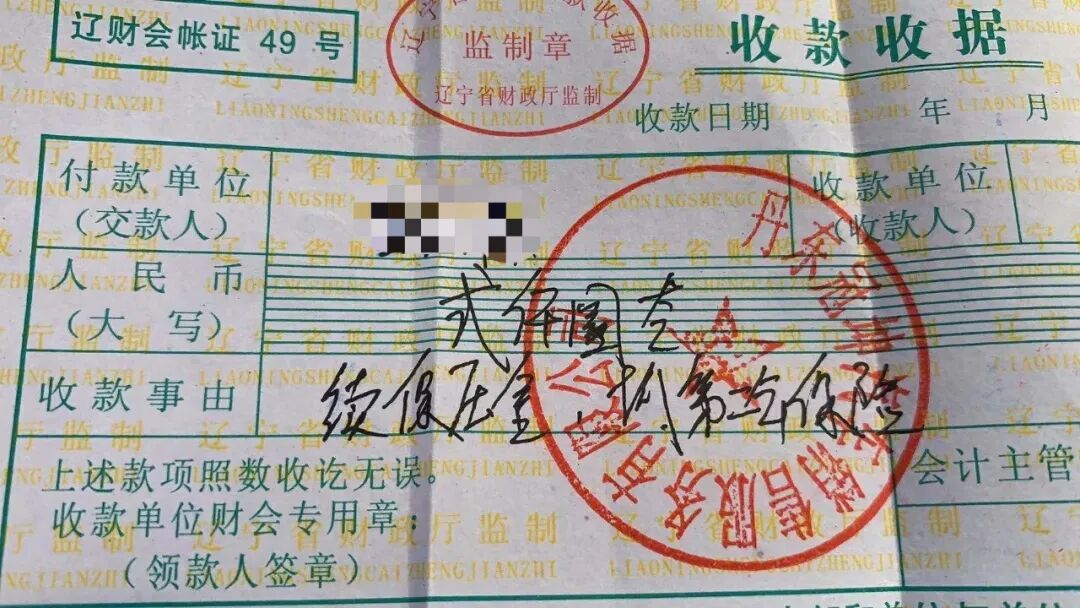 辽财会帐证 49 号
监制章
辽宁省财政厅监制
收款收据
收款日期 年 月
付款单位
(交款人)
收款单位
(收款人)
人民币
(大写)
弍仟圆
收款事由
续保压金
第二次保险
上述款项照数收讫无误。
收款单位财会专用章:
(领款人签章)
会计主管
辽宁省财政厅监制
LIAONINGSHENGCAIZHENGTINGJIANZHI